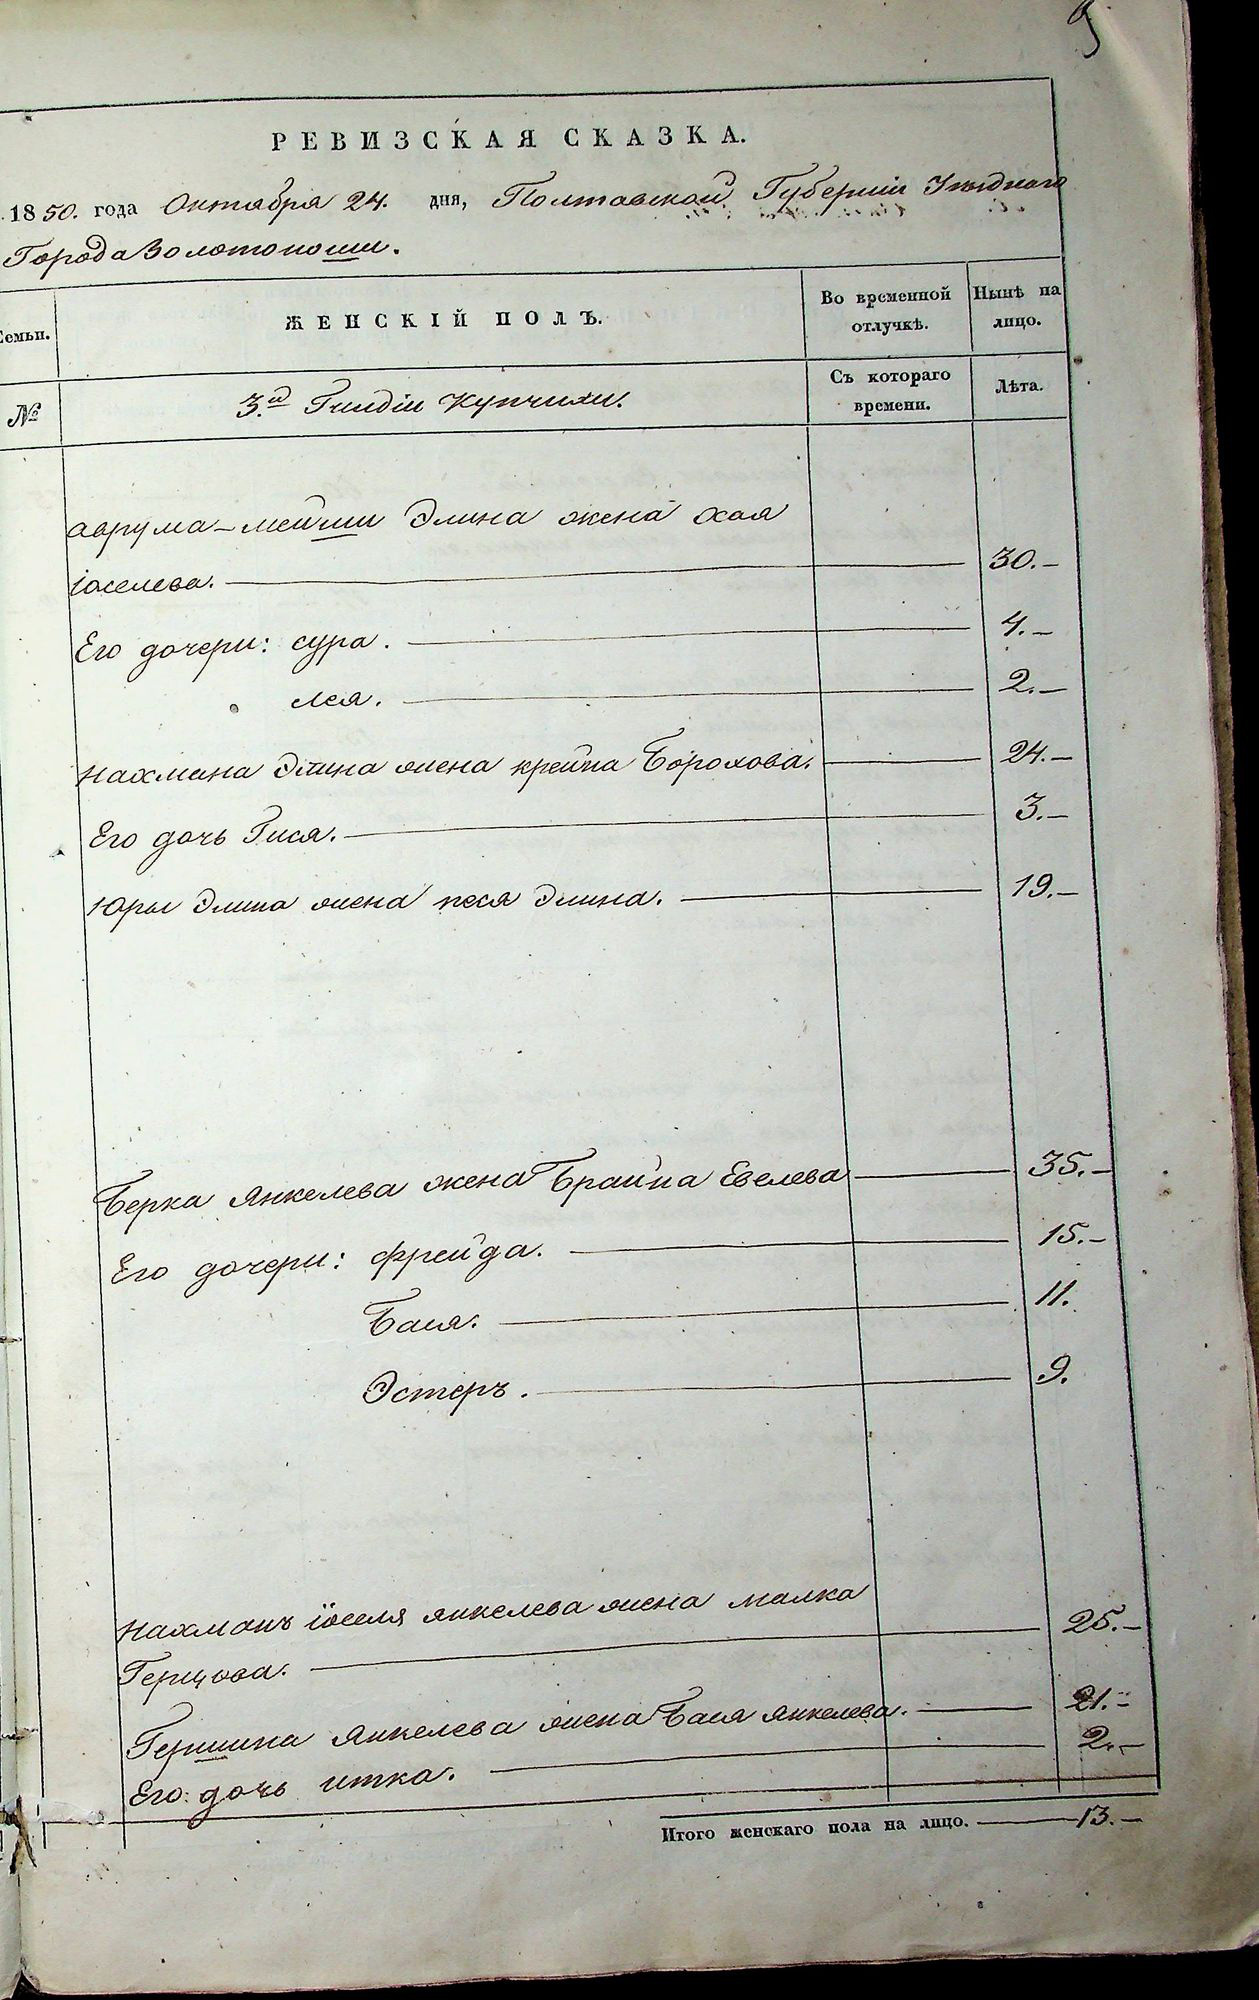 РЕВИЗСКАЯ СКАЗКА.
1850. года Октября 24. дня, Полтавской Губернии Уѣзднаго
Города Золотоноши.
Семьи.
ЖЕНСКІЙ ПОЛЪ.
Во временной отлучкѣ.
Нынѣ на лицо.
№
3.й Гильдіи Купчихи.
Съ котораго времени.
Лѣта.
Аврума-Мейши Элина жена Хая
Іоселева. 30.-
Его дочери: Сура. 4.-
Лея. 2.-
Нахмана Элина жена Крейна Борохова. 24.-
Его дочь Гися. 3.-
Юры Элина жена Песя Элина. 19.-
Берка Янкелева жена Брайна Евелева 35.-
Его дочери: Фрейда. 15.-
Бася. 11.
Эстеръ. 9.
Нахманъ Іоселя Янкелева жена Малка
Герцова. 25.-
Гершина Янкелева жена Бася Янкелева. 21.-
Его дочь Итка. 2.-
Итого женскаго пола на лицо. 13.-